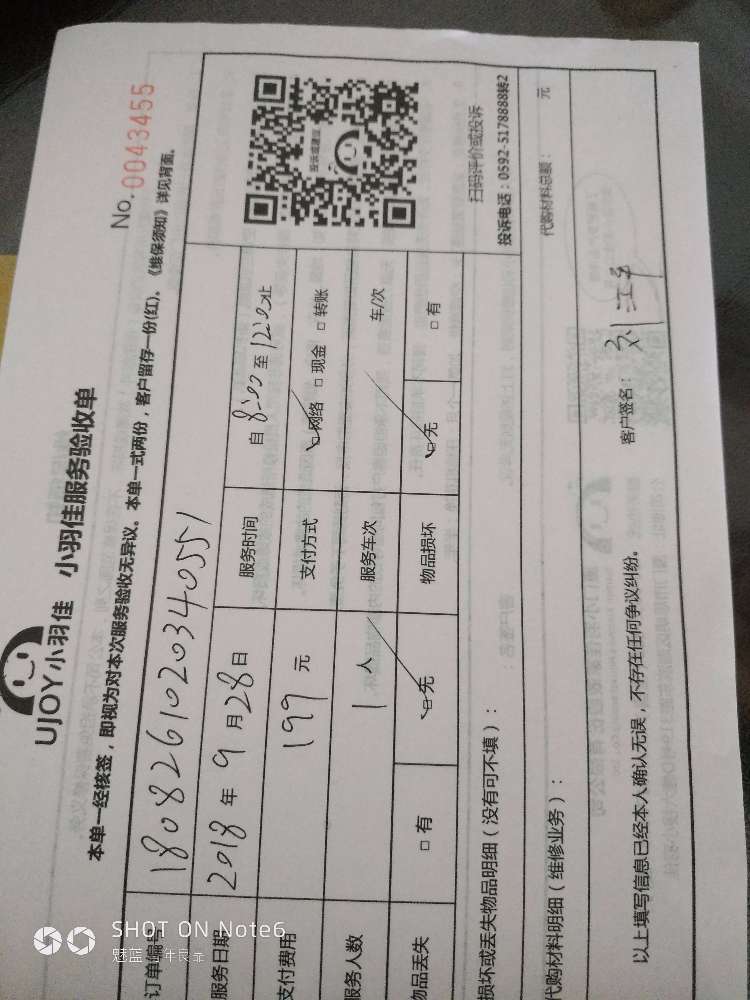 UJOY小羽佳 小羽佳服务验收单
No. 0043455
本单一经核签，即视为对本次服务验收无异议。本单一式两份，客户留存一份(红)、《维保须知》详见背面。
订单编号 180826102034 0551
服务日期 2018 年 9 月 28 日 服务时间 自 8:00 至 12:00 止
支付费用 199 元 支付方式 ☑网络 □现金 □转账
服务人数 1 人 服务车次 车/次
物品丢失 □有 ☑无 物品损坏 ☑无 □有
投诉或建议
扫码评价或投诉
投诉电话：0592-5178888转2
损坏或丢失物品明细（没有可不填）：
代购材料明细（维修业务）： 代购材料总额： 元
以上填写信息已经本人确认无误，不存在任何争议纠纷。 客户签名：
SHOT ON Note6